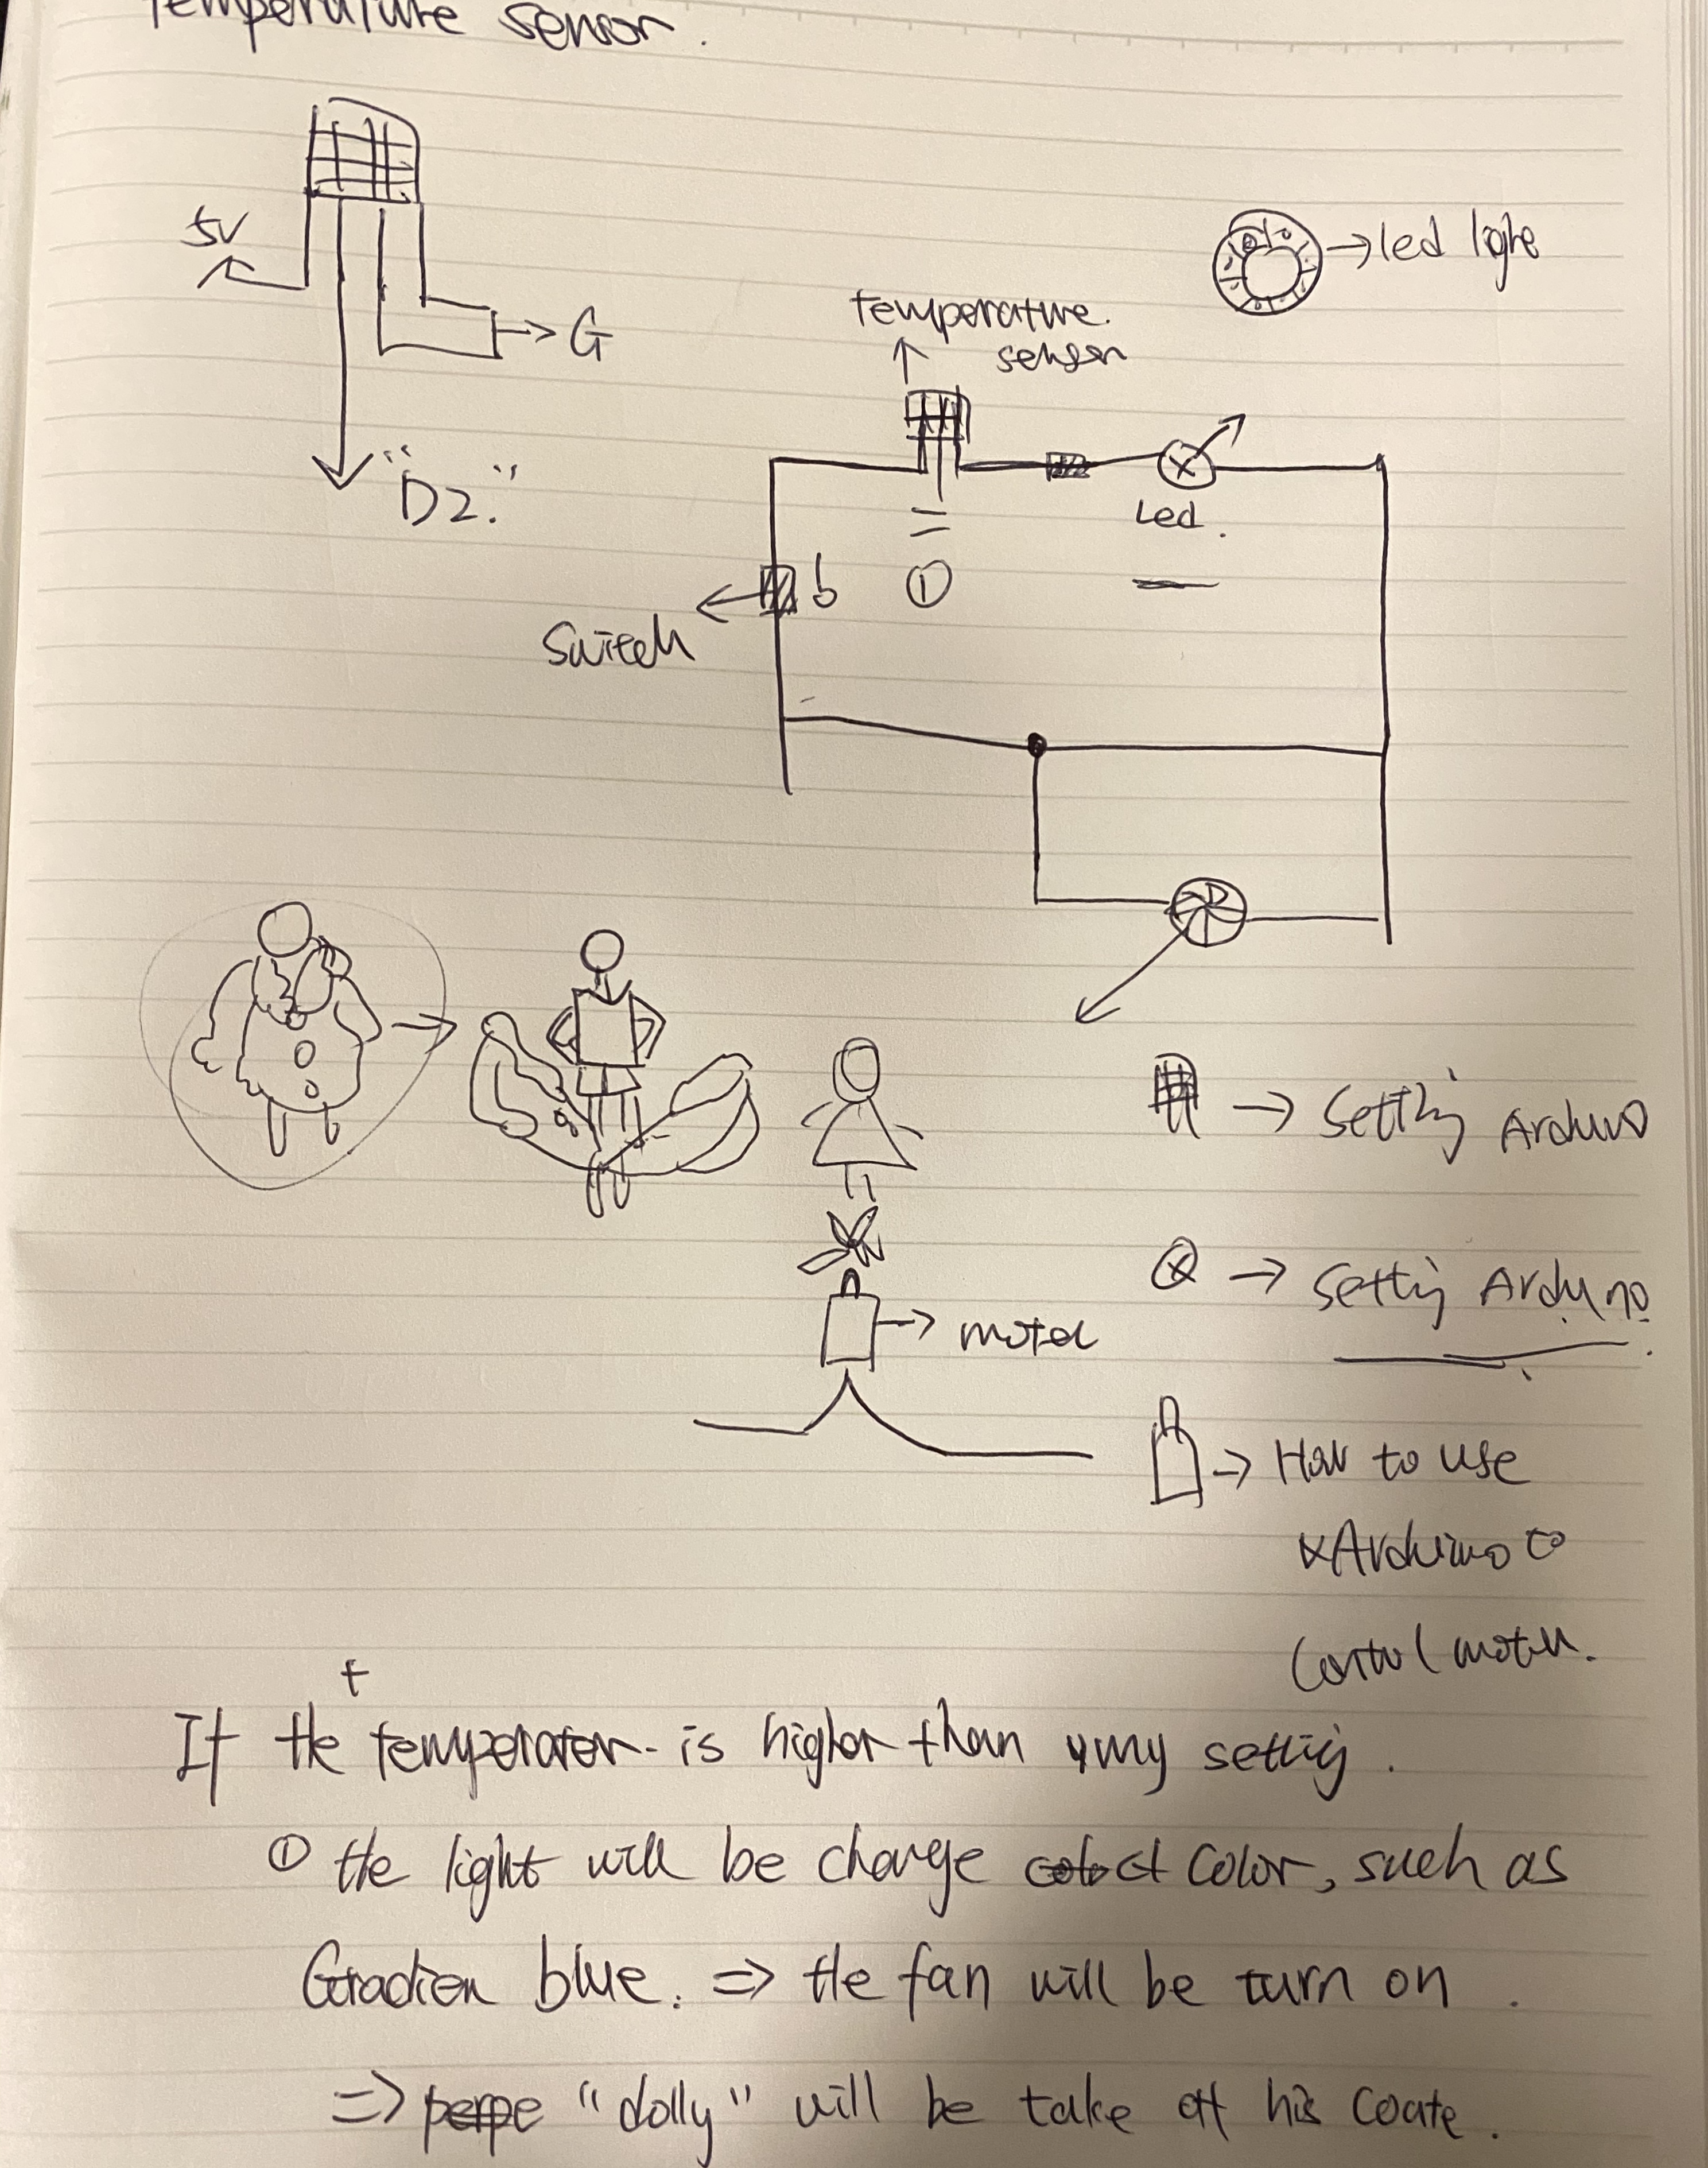 temperature sensor.
5V
G
"D2."
led light
temperature.
sensor
Led.
Switch
①
→ setting Arduino
→ setting Arduino.
→ motor
→ How to use
Arduino to
Control motor.
t
If the temperater is higher than my settig.
① the light will be change color, such as
Gradien blue. => the fan will be turn on.
=> "dolly" will be take off his coate.